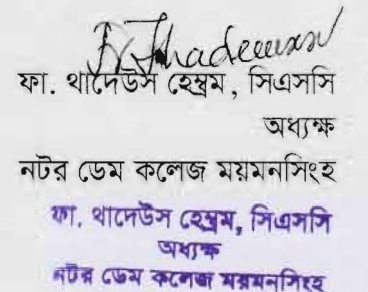 ফা. থাদেউস হেম্ব্রম, সিএসসি
অধ্যক্ষ
নটর ডেম কলেজ ময়মনসিংহ
ফা. থাদেউস হেম্ব্রম, সিএসসি
অধ্যক্ষ
নটর ডেম কলেজ ময়মনসিংহ